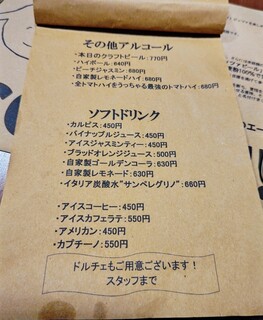 その他アルコール
・本日のクラフトビール：770円
・ハイボール：640円
・ピーチジャスミン：680円
・自家製レモネードハイ：680円
・全トマトハイをうっちゃる最強のトマトハイ：660円
ソフトドリンク
・カルピス：450円
・パイナップルジュース：450円
・アイスジャスミンティー：450円
・ブラッドオレンジジュース：500円
・自家製ゴールデンコーラ：630円
・自家製レモネード：630円
・イタリア炭酸水“サンペレグリノ”：660円
・アイスコーヒー：450円
・アイスカフェラテ：550円
・アメリカン：450円
・カプチーノ：550円
ドルチェもご用意ございます！
スタッフまで